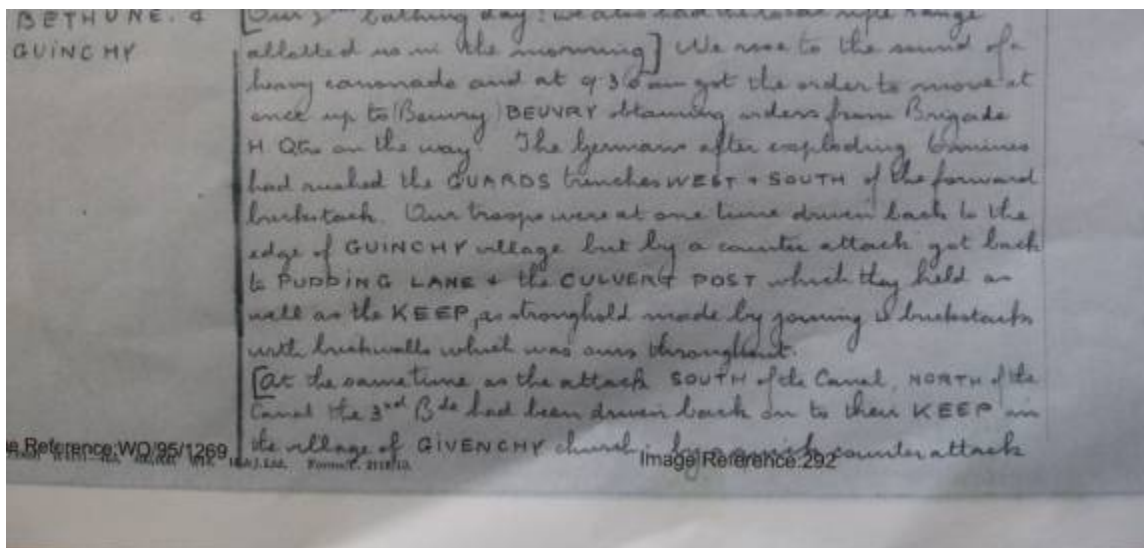 BETHUNE. &
GUINCHY
[Our 2nd bathing day: we also had the local rifle range
allotted us in the morning] We rose to the sound of a
heavy canonade and at 9.30 am got the order to move at
once up to (Beuvry) BEUVRY obtaining orders from Brigade
H. Qtrs on the way. The Germans after exploding 6 mines
had rushed the GUARDS trenches WEST & SOUTH of the forward
brickstack. Our troops were at one time driven back to the
edge of GUINCHY village but by a counter attack got back
to PUDDING LANE & the CULVERT POST which they held as
well as the KEEP, a stronghold made by joining brickstacks
with brickwalls which was ours throughout.
[At the same time as the attack SOUTH of the Canal, NORTH of the
Canal the 3rd Bde had been driven back on to their KEEP in
the village of GIVENCHY church counter attack
e Reference: WO/95/1269
Image Reference: 292